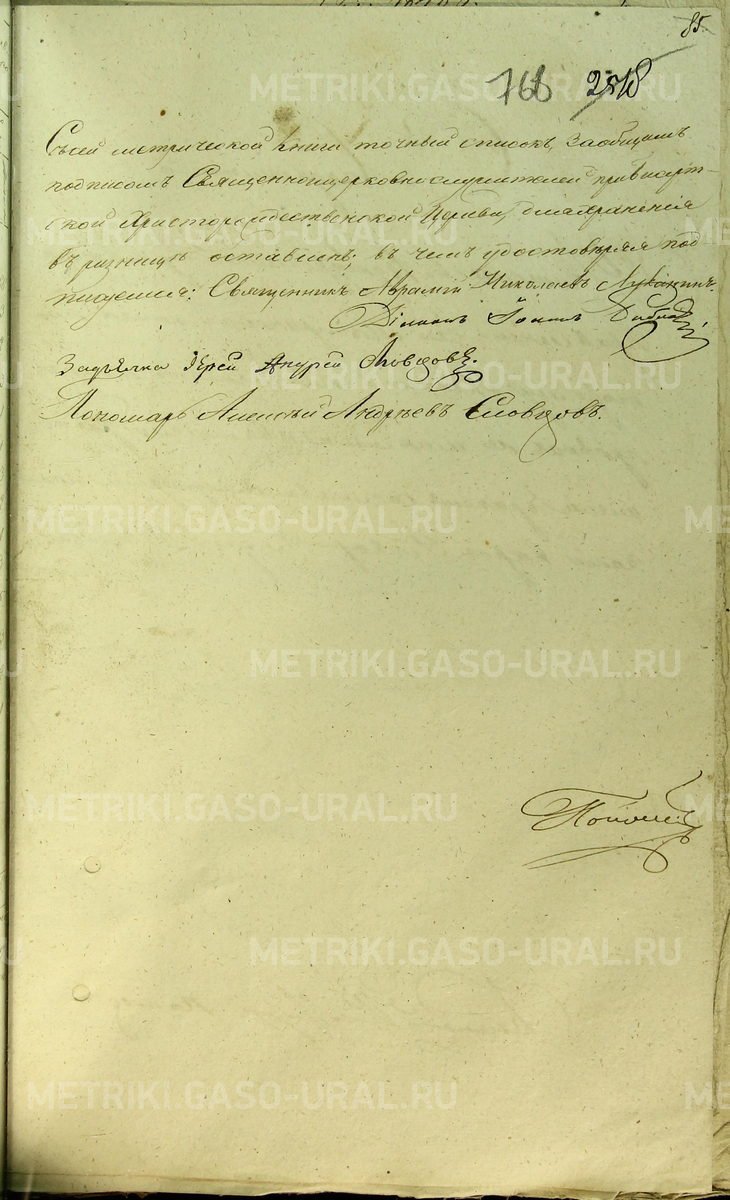 85.
766 2518
Съсей метрической книги точный списокъ, заобщимъ
подписомъ Священноицерковнослужителей при Висерт-
ской Христорождественской Церкви, для хранения
въ ризницѣ оставленъ; въ чемъ удостовѣряя под-
писуемся: Священникъ Аврамiй Николаевъ Луканинъ.
Дiаконъ Iоаннъ
Задьячка Iерей Андрей Словцовъ.
Пономарь Алексѣй Андрѣевъ Словцовъ.
METRIKI.GASO-URAL.RU